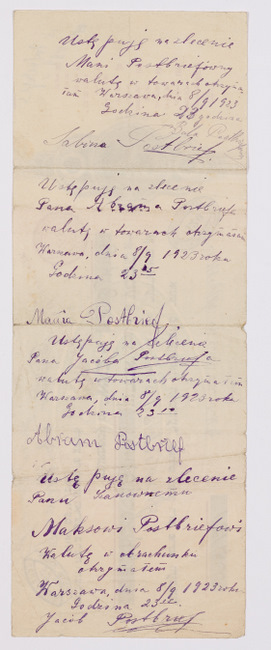 Ustępuję na zlecenie
Mani Postbriefówny
walutę w towarach otrzyma
łam Warszawa, dnia 8/9 1923
Godzina 23
Sabina Postbrief
Ustępuję na zlecenie
Pana Abrama Postbriefa
walutę w towarach otrzymałam
Warszawa, dnia 8/9 1923 roku
Godzina 23
Mania Postbrief
Ustępuję na zlecenie
Pana Jacóba Postbriefa
walutę w towarach otrzymałem
Warszawa, dnia 8/9 1923 roku
Godzina 23
Abram Postbrief
Ustępuję na zlecenie
Panu Szanownemu
Maksowi Postbriefowi
Walutę w Rachunku
otrzymałem
Warszawa, dnia 8/9 1923 roku
Godzina 23
Jacób Postbrief